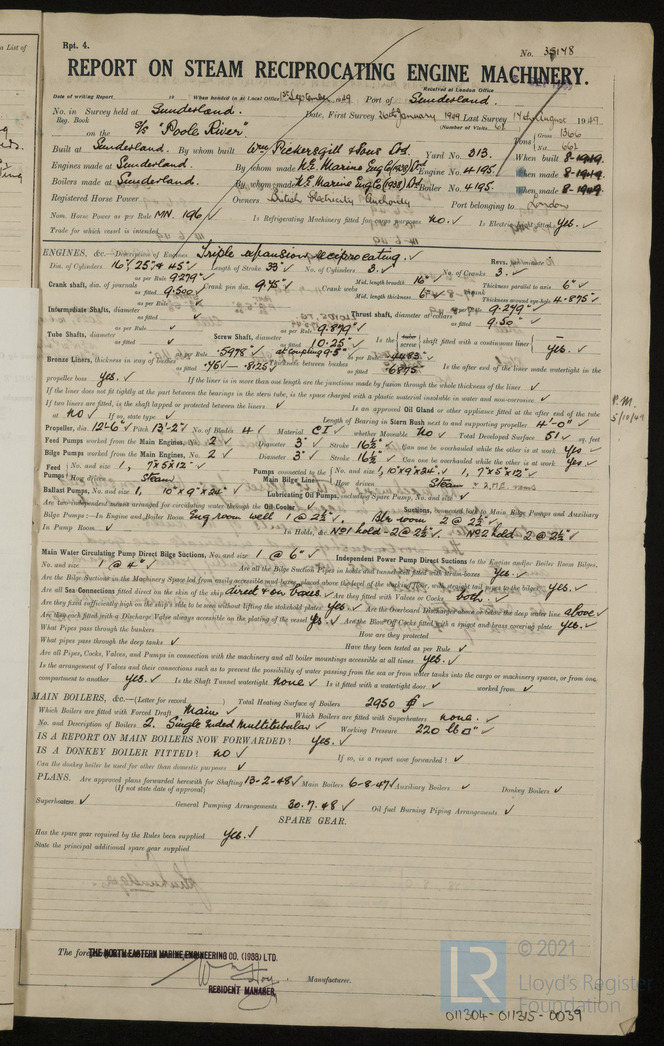 Rpt. 4.
No. 35148
REPORT ON STEAM RECIPROCATING ENGINE MACHINERY.
Received at London Office
Date of writing Report 19 When handed in at Local Office 1st September 1949 Port of Sunderland.
No. in Survey held at Sunderland. Date, First Survey January 1949 Last Survey 1949
Reg. Book (Number of Visits 61)
on the S/S "Poole River" Tons Gross 1366
Built at Sunderland. By whom built Wm Pickersgill & Sons Ltd. Yard No. 313. When built 8-1949.
Engines made at Sunderland. By whom made N.E. Marine Eng Co (1938) Ltd Engine No. 4195. When made 8-1949.
Boilers made at Sunderland. By whom made N.E. Marine Eng Co (1938) Ltd Boiler No. 4195. When made 8-1949.
Registered Horse Power Owners British Electricity Authority Port belonging to London
Nom. Horse Power as per Rule MN 196 ✓ Is Refrigerating Machinery fitted for cargo purposes No. ✓ Is Electric Light fitted Yes. ✓
Trade for which vessel is intended
ENGINES, &c.—Description of Engines Triple expansion Reciprocating. ✓ Revs. per minute
Dia. of Cylinders 16", 25" & 45" ✓ Length of Stroke 33" ✓ No. of Cylinders 3. ✓ No. of Cranks 3. ✓
Crank shaft, dia. of journals as per Rule 9.279" ✓ as fitted 9.500" Crank pin dia. 9.75" ✓ Crank webs Mid. length breadth 16" ✓ Mid. length thickness 6" ✓ Thickness parallel to axis 6" ✓ Thickness around eye-hole 4.875"
Intermediate Shafts, diameter as per Rule ✓ as fitted ✓ Thrust shaft, diameter at collars as per Rule 9.279" as fitted 9.50" ✓
Tube Shafts, diameter as per Rule ✓ as fitted ✓ Screw Shaft, diameter as per Rule 9.879" as fitted 10.25" ✓ Is the tube screw shaft fitted with a continuous liner — Yes. ✓
Bronze Liners, thickness in way of bushes as per Rule .5978" ✓ as fitted .751" — .8125" Thickness between bushes as per Rule .4483" as fitted .6875" Is the after end of the liner made watertight in the
propeller boss Yes. ✓ If the liner is in more than one length are the junctions made by fusion through the whole length of the liner ✓
If the liner does not fit tightly at the part between the bearings in the stern tube, is the space charged with a plastic material insoluble in water and non-corrosive ✓
If two liners are fitted, is the shaft lapped or protected between the liners ✓ Is an approved Oil Gland or other appliance fitted at the after end of the tube
shaft No ✓ If so, state type ✓ Length of Bearing in Stern Bush next to and supporting propeller 4'-0" ✓
Propeller, dia. 12'-6" ✓ Pitch 13'-2" ✓ No. of Blades 4 ✓ Material C I ✓ whether Moveable No ✓ Total Developed Surface 51 ✓ sq. feet
Feed Pumps worked from the Main Engines, No. 2 ✓ Diameter 3" ✓ Stroke 16½" ✓ Can one be overhauled while the other is at work Yes ✓
Bilge Pumps worked from the Main Engines, No. 2 ✓ Diameter 3" ✓ Stroke 16½" ✓ Can one be overhauled while the other is at work Yes ✓
Feed Pumps No. and size 1, 7" x 5" x 12" ✓ Pumps connected to the Main Bilge Line No. and size 1, 10" x 9" x 24" ✓ 1, 7" x 5" x 12" ✓
How driven Steam How driven Steam
Ballast Pumps, No. and size 1, 10" x 9" x 24" ✓ Lubricating Oil Pumps, including Spare Pump, No. and size ✓
Are two independent means arranged for circulating water through the Oil Cooler ✓ Suctions, connected both to Main Bilge Pumps and Auxiliary
Bilge Pumps—In Engine and Boiler Room Eng room well 1 @ 2½" ✓. Blr room 2 @ 2½" ✓
In Pump Room ✓ In Holds, &c. No1 hold - 2 @ 2½" ✓ No2 hold - 2 @ 2½" ✓
Main Water Circulating Pump Direct Bilge Suctions, No. and size 1 @ 6" ✓ Independent Power Pump Direct Suctions to the Engine and/or Boiler Room Bilges,
No. and size 1 @ 4" ✓ Are all the Bilge Suction Pipes in holds and tunnel well fitted with strum-boxes Yes. ✓
Are the Bilge Suctions in the Machinery Space led from easily accessible mud boxes, placed above the level of the working floor, with straight tail pipes to the bilges Yes. ✓
Are all Sea Connections fitted direct on the skin of the ship direct & on boxes. ✓ Are they fitted with Valves or Cocks both. ✓
Are they fixed sufficiently high on the ship's side to be seen without lifting the stokehold plates Yes. ✓ Are the Overboard Discharges above or below the deep water line above ✓
Are they each fitted with a Discharge Valve always accessible on the plating of the vessel Yes ✓ Are the Blow Off Cocks fitted with a spigot and brass covering plate Yes. ✓
What Pipes pass through the bunkers How are they protected
What pipes pass through the deep tanks ✓ Have they been tested as per Rule ✓
Are all Pipes, Cocks, Valves, and Pumps in connection with the machinery and all boiler mountings accessible at all times Yes. ✓
Is the arrangement of Valves and their connections such as to prevent the possibility of water passing from the sea or from water tanks into the cargo or machinery spaces, or from one
compartment to another Yes. ✓ Is the Shaft Tunnel watertight None ✓ Is it fitted with a watertight door ✓ worked from ✓
MAIN BOILERS, &c.—(Letter for record) Total Heating Surface of Boilers 2950 ✓
Which Boilers are fitted with Forced Draft Main ✓ Which Boilers are fitted with Superheaters none. ✓
No. and Description of Boilers 2. Single ended Multitubular ✓ Working Pressure 220 lb □" ✓
IS A REPORT ON MAIN BOILERS NOW FORWARDED? Yes. ✓
IS A DONKEY BOILER FITTED? No ✓ If so, is a report now forwarded? ✓
Can the donkey boiler be used for other than domestic purposes ✓
PLANS. Are approved plans forwarded herewith for Shafting 13-2-48 ✓ Main Boilers 6-8-47 ✓ Auxiliary Boilers ✓ Donkey Boilers ✓
(If not state date of approval)
Superheaters ✓ General Pumping Arrangements 30.7.48 ✓ Oil fuel Burning Piping Arrangements ✓
SPARE GEAR.
Has the spare gear required by the Rules been supplied Yes. ✓
State the principal additional spare gear supplied
P.M.
5/10/49
THE NORTH EASTERN MARINE ENGINEERING CO. (1938) LTD.
Manufacturer.
RESIDENT MANAGER.
LR © 2021
Lloyd's Register
Foundation
011304-011315-0039